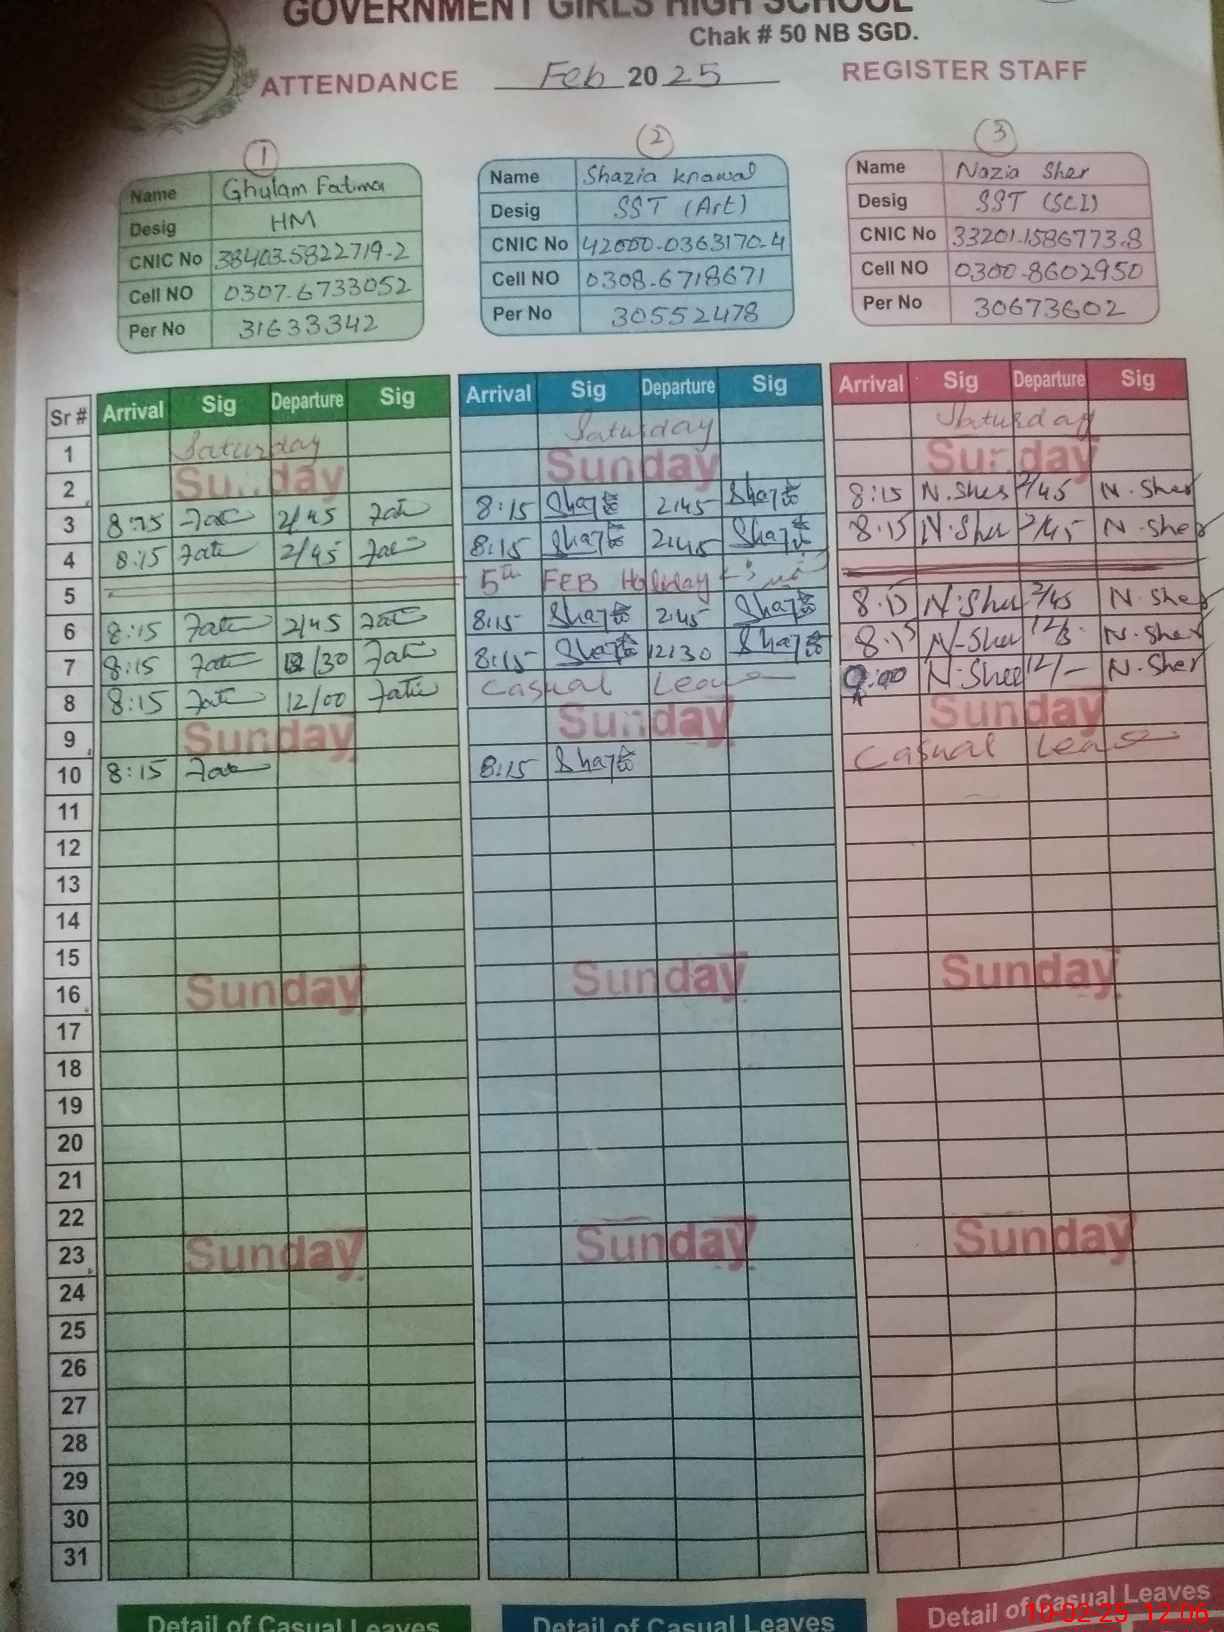 GOVERNMENT GIRLS HIGH SCHOOL
Chak # 50 NB SGD.
ATTENDANCE Feb 2025 REGISTER STAFF
1 2 3
Name Ghulam Fatima Name Shazia Knawal Name Nazia Sher
Desig HM Desig SST (Art) Desig SST (SCI)
CNIC No 38403-5822719-2 CNIC No 42000-0363170-4 CNIC No 33201-1586773-8
Cell NO 0307-6733052 Cell NO 0308-6718671 Cell NO 0300-8602950
Per No 31633342 Per No 30552478 Per No 30673602
Sr # Arrival Sig Departure Sig Arrival Sig Departure Sig Arrival Sig Departure Sig
1 Saturday Saturday Saturday
2 Sunday Sunday Sunday
3 8:15 2/45 8:15 2:45 8:15 N.Sher 2/45 N.Sher
4 8:15 2/45 8:15 2:45 8:15 N.Sher 2/45 N.Sher
5 5th FEB Holiday
6 8:15 2/45 8:15 2:45 8:15 N.Sher 2/45 N.Sher
7 8:15 12/30 8:15 12:30 8:15 N-Sher N.Sher
8 8:15 12/00 Casual Leave N.Sher 12/- N.Sher
9 Sunday Sunday Sunday
10 8:15 8:15 Casual Leave
11
12
13
14
15
16 Sunday Sunday Sunday
17
18
19
20
21
22
23 Sunday Sunday Sunday
24
25
26
27
28
29
30
31
Detail of Casual Leaves Detail of Casual Leaves Detail of Casual Leaves
10-02-25 12:06